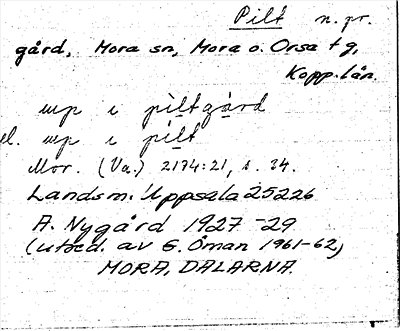 Pilt n. pr.
gård, Mora sn, Mora o. Orsa tg,
Kopp. län.
up i piltgård
el. up i pilt
Mor. (Va.) 2174:21, s. 34.
Landsm. Uppsala 25226
A. Nygård 1927-29
(utred. av E. Öman 1961-62)
MORA, DALARNA.